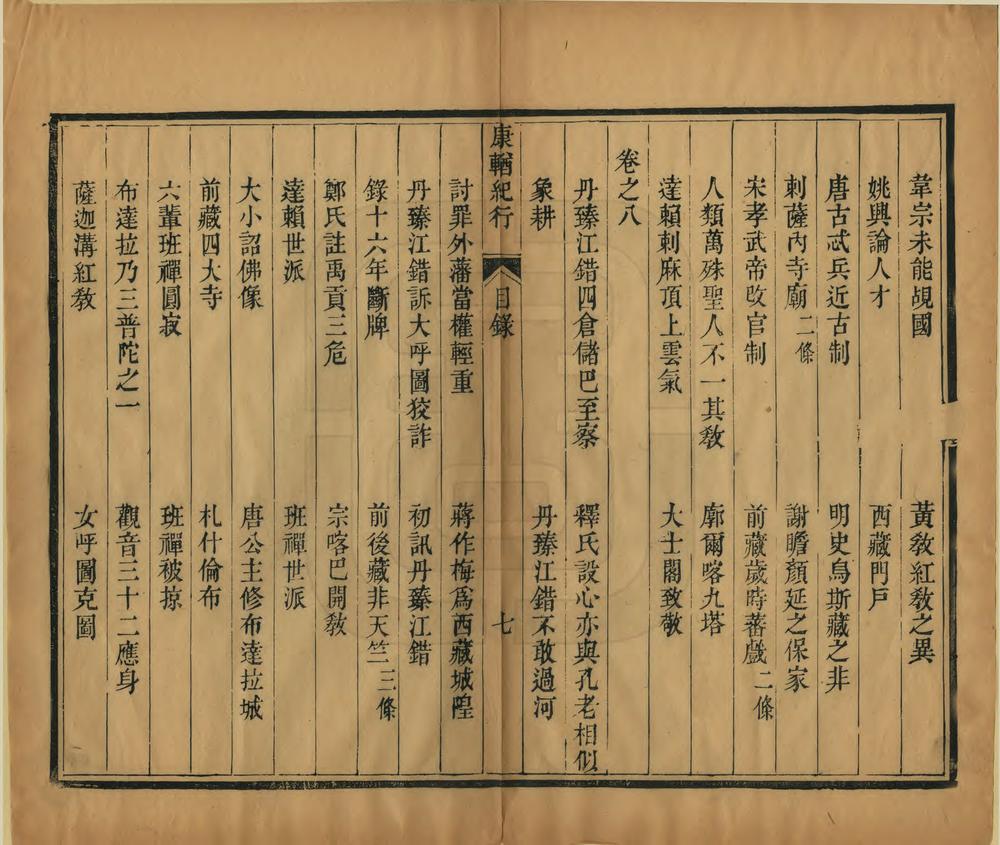 韋宗未能覘國　黃敎紅敎之異
姚興論人才　西藏門戶
唐古忒兵近古制　明史烏斯藏之非
刺薩內寺廟二條　謝瞻顏延之保家
宋孝武帝改官制　前藏歲時蕃戲二條
人類萬殊聖人不一其敎　廓爾喀九塔
達賴刺麻頂上雲氣　大士閣致敬
卷之八
丹臻江錯四倉儲巴至察　釋氏設心亦與孔老相似
象耕　丹臻江錯不敢過河
康輶紀行　目錄　七
討罪外藩當權輕重　蔣作梅爲西藏城隍
丹臻江錯訴大呼圖狡詐　初訊丹臻江錯
錄十六年斷牌　前後藏非天竺三條
鄭氏註禹貢三危　宗喀巴開敎
達賴世派　班禪世派
大小詔佛像　唐公主修布達拉城
前藏四大寺　札什倫布
六輩班禪圓寂　班禪被掠
布達拉乃三普陀之一　觀音三十二應身
薩迦溝紅敎　女呼圖克圖